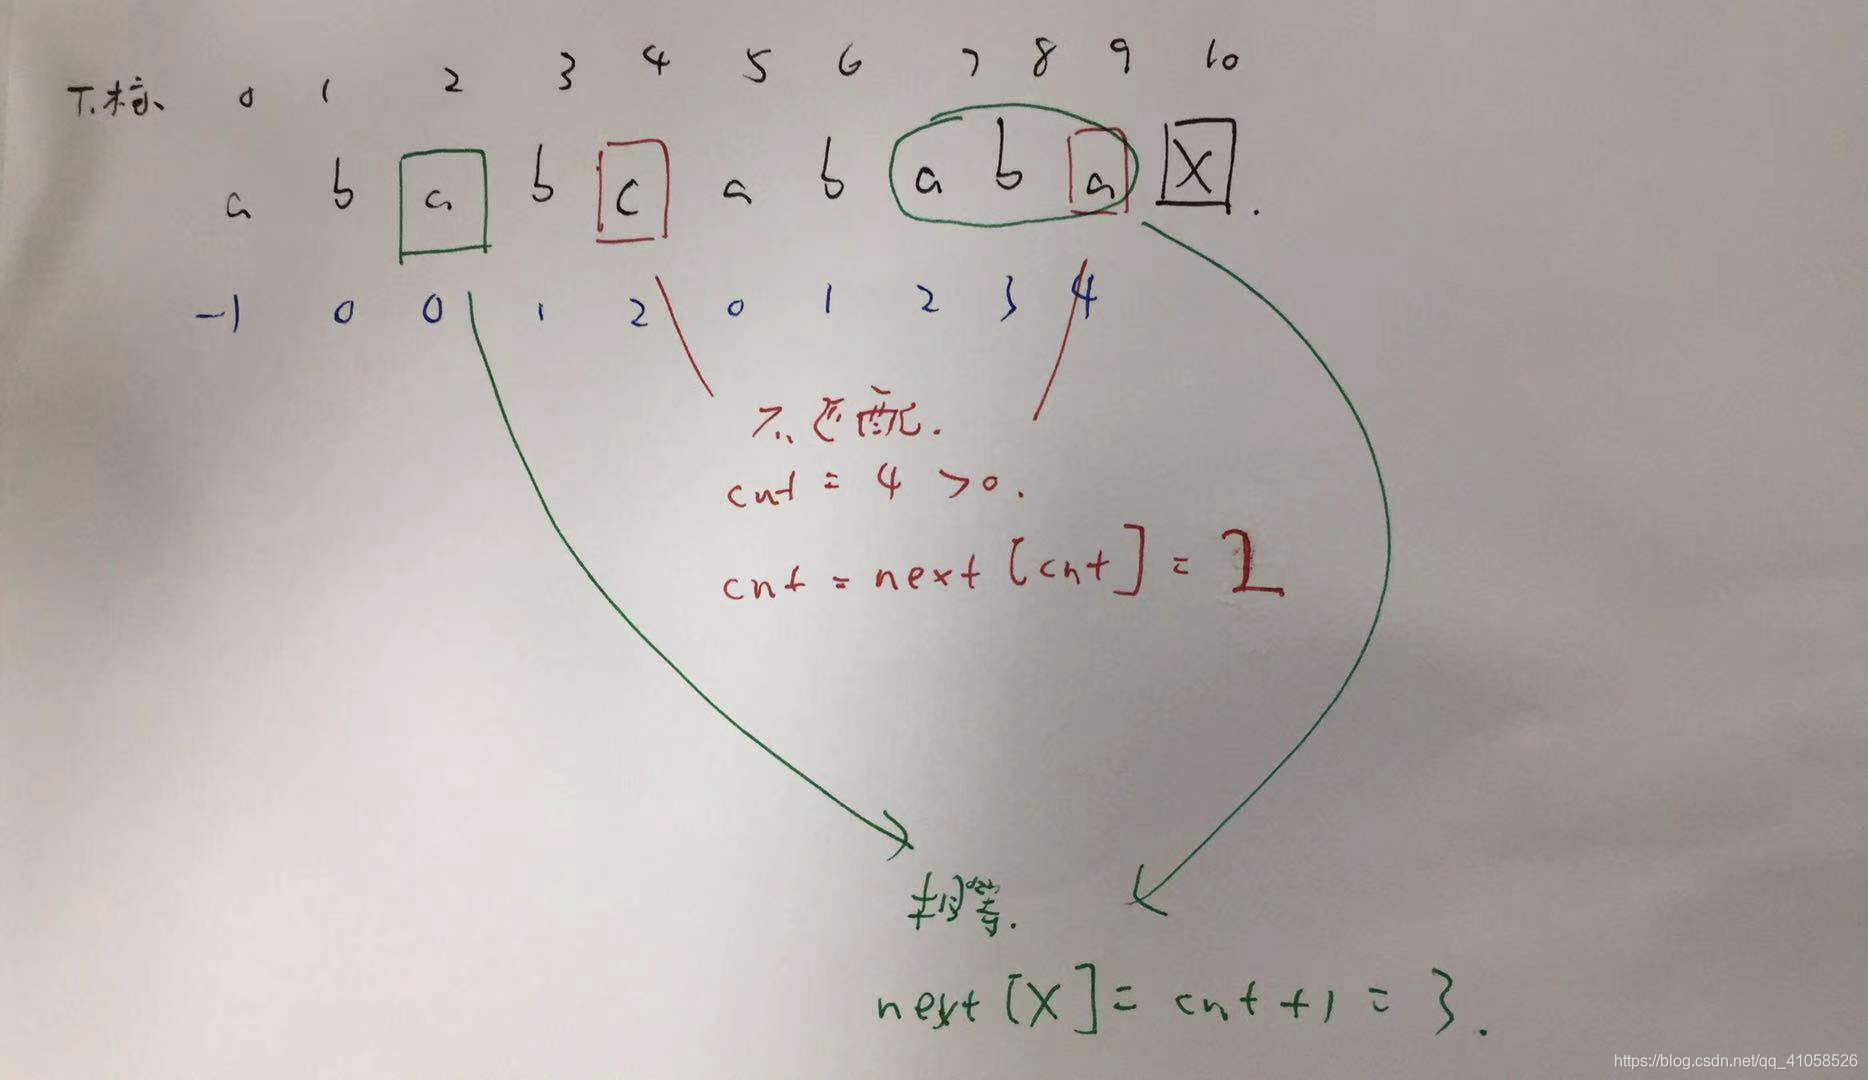 下标 0 1 2 3 4 5 6 7 8 9 10
a b a b c a b a b a X.
-1 0 0 1 2 0 1 2 3 4
不匹配.
cnt = 4 >0.
cnt = next [cnt] = 2
相等.
next [X] = cnt +1 = 3.
https://blog.csdn.net/qq_41058526